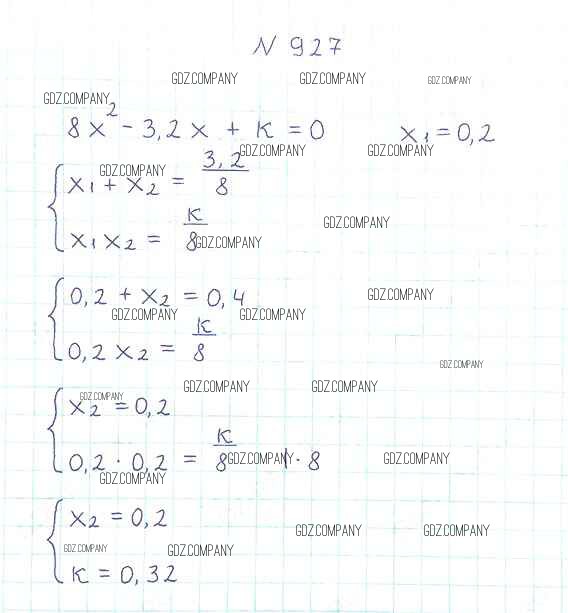 N 927
GDZ.COMPANY GDZ.COMPANY GDZ.COMPANY
GDZ.COMPANY
8x² - 3,2x + к = 0 x₁ = 0,2
GDZ.COMPANY GDZ.COMPANY
GDZ.COMPANY
x₁ + x₂ = 3,2/8
GDZ.COMPANY
x₁ x₂ = к/8
GDZ.COMPANY
0,2 + x₂ = 0,4
GDZ.COMPANY
GDZ.COMPANY GDZ.COMPANY
0,2 x₂ = к/8
GDZ.COMPANY
GDZ.COMPANY GDZ.COMPANY
GDZ.COMPANY
x₂ = 0,2
0,2 · 0,2 = к/8 |· 8
GDZ.COMPANY GDZ.COMPANY
GDZ.COMPANY
x₂ = 0,2
GDZ.COMPANY GDZ.COMPANY
GDZ.COMPANY GDZ.COMPANY
к = 0,32